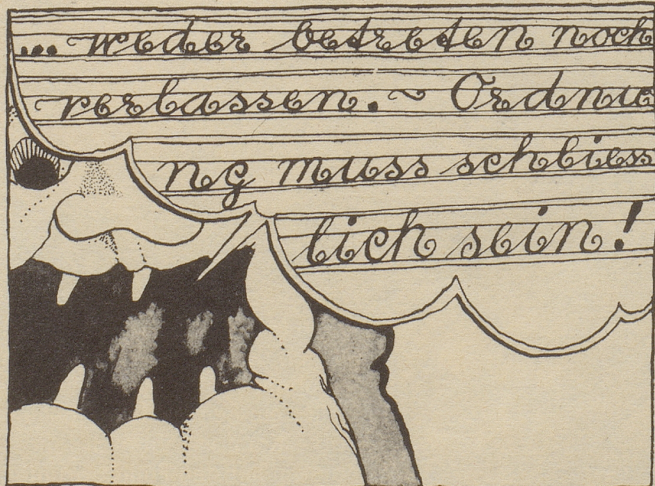 ... weder betreten noch
verlassen. ~ Ordnu
ng muss schliess
lich sein!